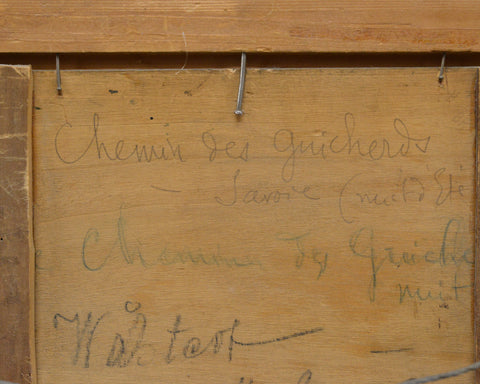 Chemin des Guicherds
– Savoie (nuit d'Eté
Chemin des Guiche
nuit